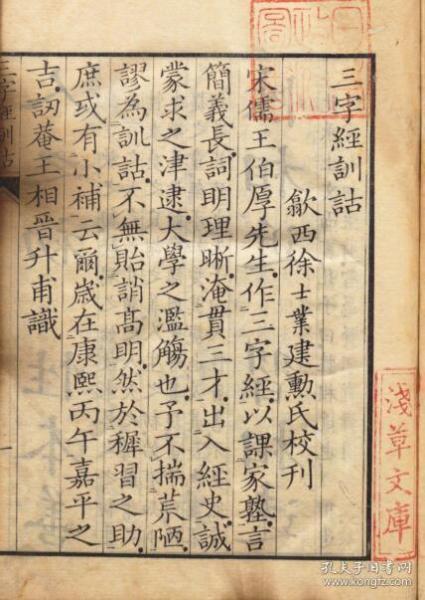 三字經訓詁
歙西徐士業建勳氏校刊
宋儒王伯厚先生作三字經以課家塾言
簡義長詞明理晰淹貫三才出入經史誠
蒙求之津逮大學之濫觴也予不揣荒陋
謬為訓詁不無貽誚高明然於穉習之助
庶或有小補云爾歲在康熙丙午嘉平之
吉訒菴王相晉升甫識
三字經訓詁
一
淺草文庫
孔夫子旧书网
www.kongfz.com